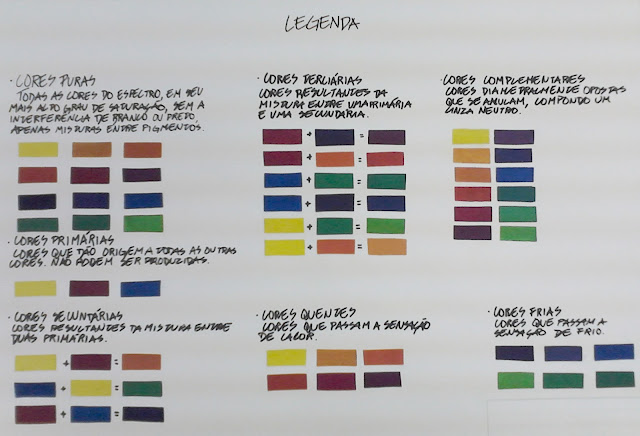 LEGENDA
· CORES PURAS
TODAS AS CORES DO ESPECTRO, EM SEU
MAIS ALTO GRAU DE SATURAÇÃO, SEM A
INTERFERÊNCIA DE BRANCO OU PRETO,
APENAS MISTURAS ENTRE PIGMENTOS.
· CORES PRIMÁRIAS
CORES QUE DÃO ORIGEM A TODAS AS OUTRAS
CORES. NÃO PODEM SER PRODUZIDAS.
· CORES SECUNDÁRIAS
CORES RESULTANTES DA MISTURA ENTRE
DUAS PRIMÁRIAS.
+ =
+ =
+ =
· CORES TERCIÁRIAS
CORES RESULTANTES DA
MISTURA ENTRE UMA PRIMÁRIA
E UMA SECUNDÁRIA.
+ =
+ =
+ =
+ =
+ =
+ =
· CORES QUENTES
CORES QUE PASSAM A SENSAÇÃO
DE CALOR.
· CORES COMPLEMENTARES
CORES DIAMETRALMENTE OPOSTAS
QUE SE ANULAM, COMPONDO UM
CINZA NEUTRO.
· CORES FRIAS
CORES QUE PASSAM A
SENSAÇÃO DE FRIO.